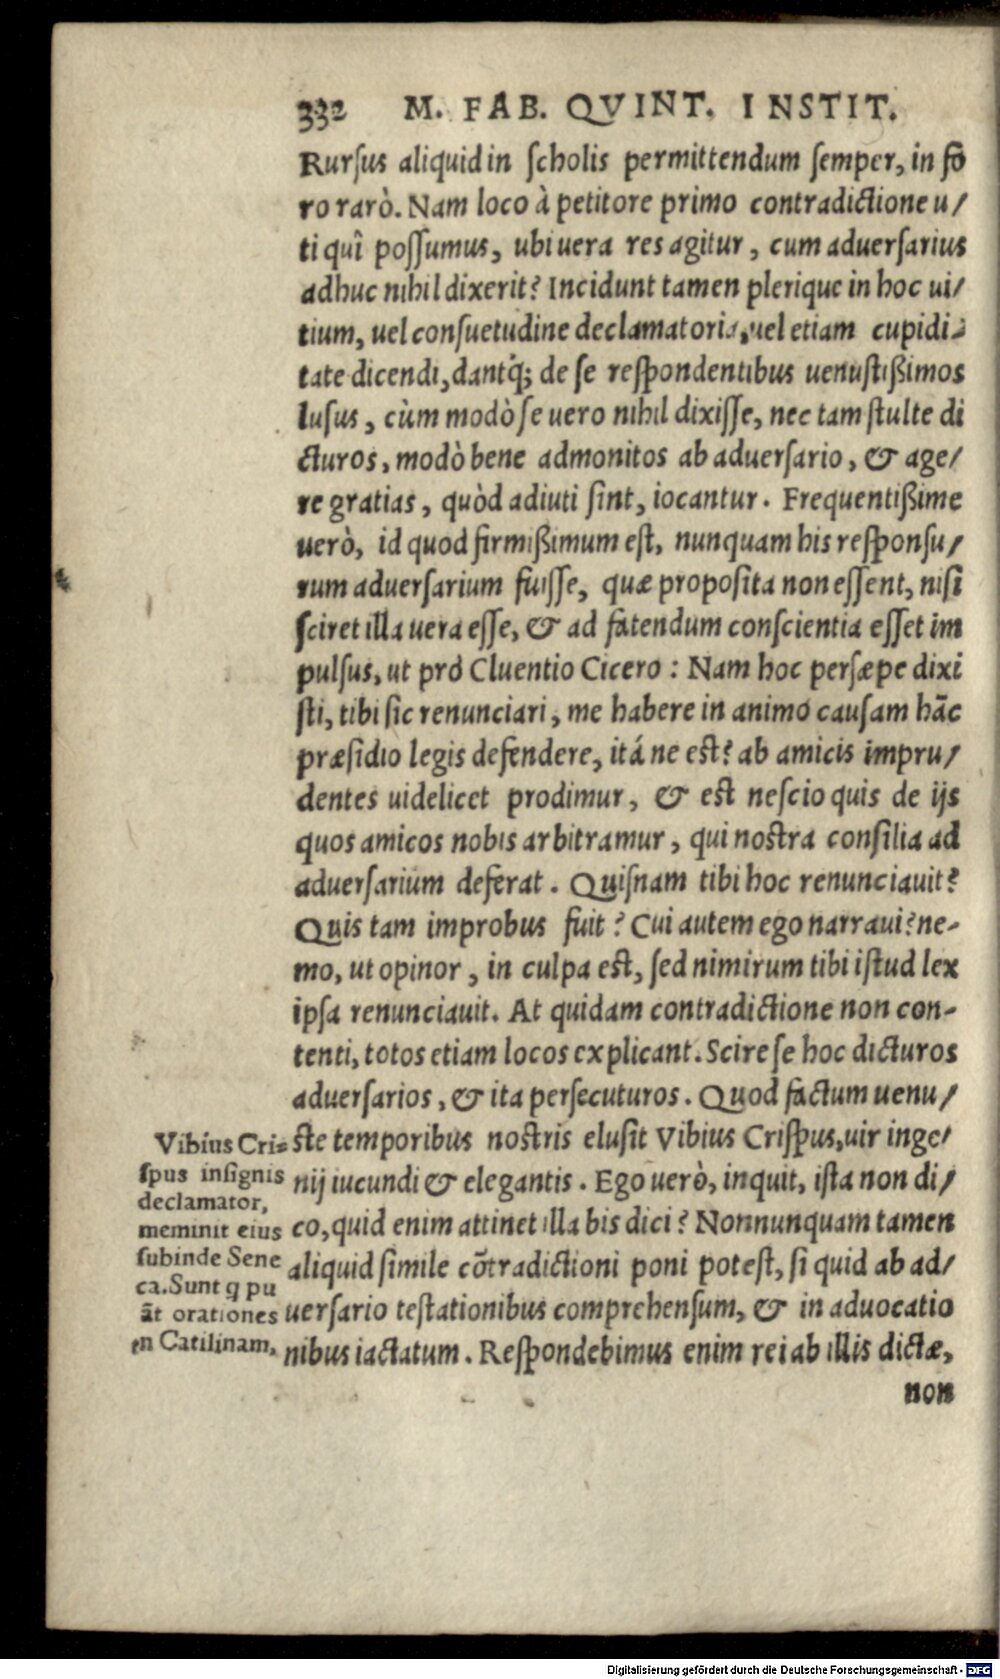 332 M. FAB. QVINT. INSTIT.
Rursus aliquid in scholis permittendum semper, in fo
ro rarò. Nam loco à petitore primo contradictione u/
ti quî possumus, ubi uera res agitur, cum aduersarius
adhuc nihil dixerit? Incidunt tamen plerique in hoc ui/
tium, uel consuetudine declamatoria, uel etiam cupidi-
tate dicendi, dantq́; de se respondentibus uenustißimos
lusus, cùm modò se uero nihil dixisse, nec tam stulte di
cturos, modò bene admonitos ab aduersario, & age/
re gratias, quòd adiuti sint, iocantur. Frequentißime
uerò, id quod firmißimum est, nunquam his responsu/
rum aduersarium fuisse, quæ proposita non essent, nisi
sciret illa uera esse, & ad fatendum conscientia esset im
pulsus, ut pro Cluentio Cicero: Nam hoc persæpe dixi
sti, tibi sic renunciari, me habere in animo causam hāc
præsidio legis defendere, itá ne est? ab amicis impru/
dentes uidelicet prodimur, & est nescio quis de ijs
quos amicos nobis arbitramur, qui nostra consilia ad
aduersarium deferat. Quisnam tibi hoc renunciauit?
Quis tam improbus fuit? Cui autem ego narraui? ne-
mo, ut opinor, in culpa est, sed nimirum tibi istud lex
ipsa renunciauit. At quidam contradictione non con-
tenti, totos etiam locos explicant. Scire se hoc dicturos
aduersarios, & ita persecuturos. Quod factum uenu/
ste temporibus nostris elusit Vibius Crispus, uir inge/
nij iucundi & elegantis. Ego uerò, inquit, ista non di/
co, quid enim attinet illa bis dici? Nonnunquam tamen
aliquid simile cōtradictioni poni potest, si quid ab ad/
uersario testationibus comprehensum, & in aduocatio
nibus iactatum. Respondebimus enim rei ab illis dictæ,
non
Vibius Cri-
spus insignis
declamator,
meminit eius
subinde Sene
ca. Sunt q pu
āt orationes
in Catilinam,
Digitalisierung gefördert durch die Deutsche Forschungsgemeinschaft - DFG